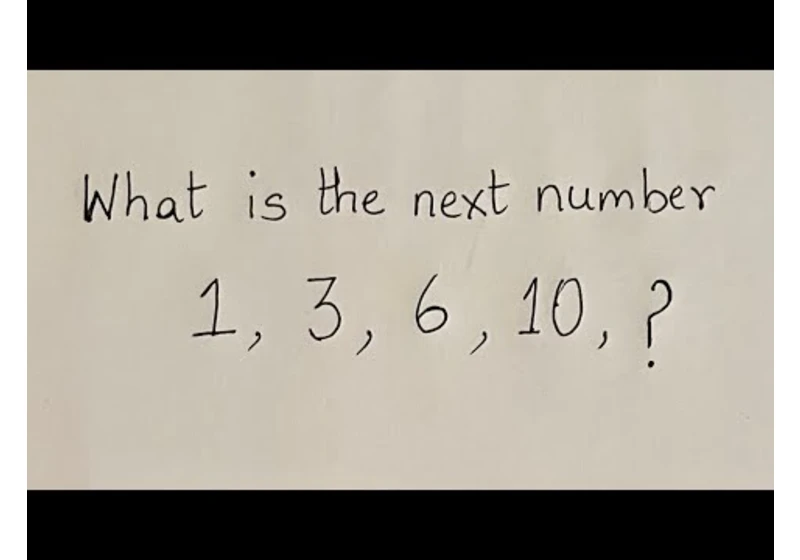 What is the next number
1, 3, 6, 10, ?